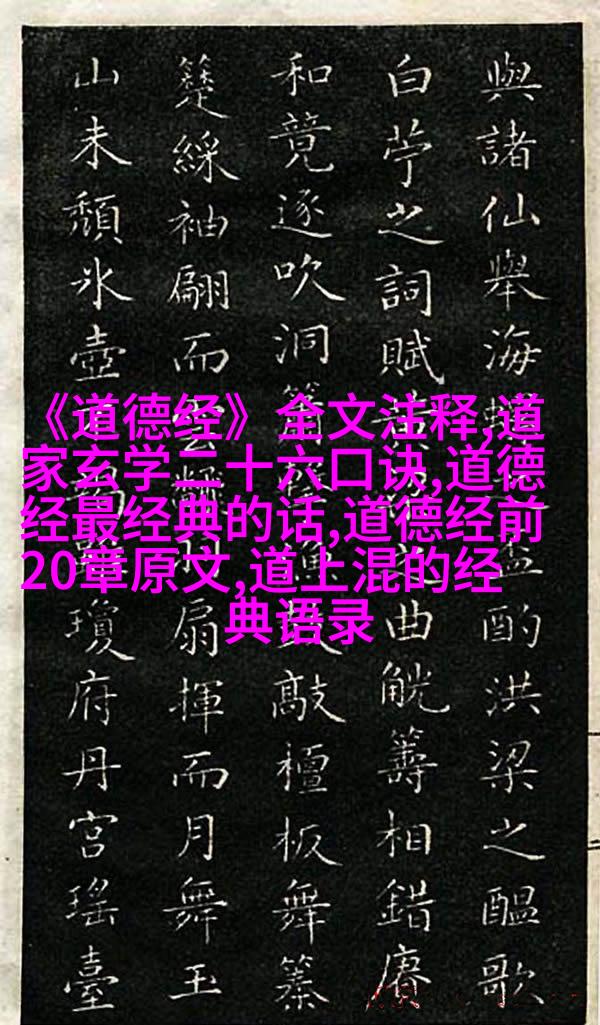 《道德经》全文注释,道
家玄学二十六口诀,道德
经最经典的话,道德经前
20章原文,道上混的经
典语录
與諸仙舉海酌洪梁之醞歌
白苧之詞賦曲觥籌相錯賡
和竟逐吹洞簫敲檀板舞
綵袖翩而雲扇揮而月舞玉
山未頹氷壺瓊府丹宮瑤臺